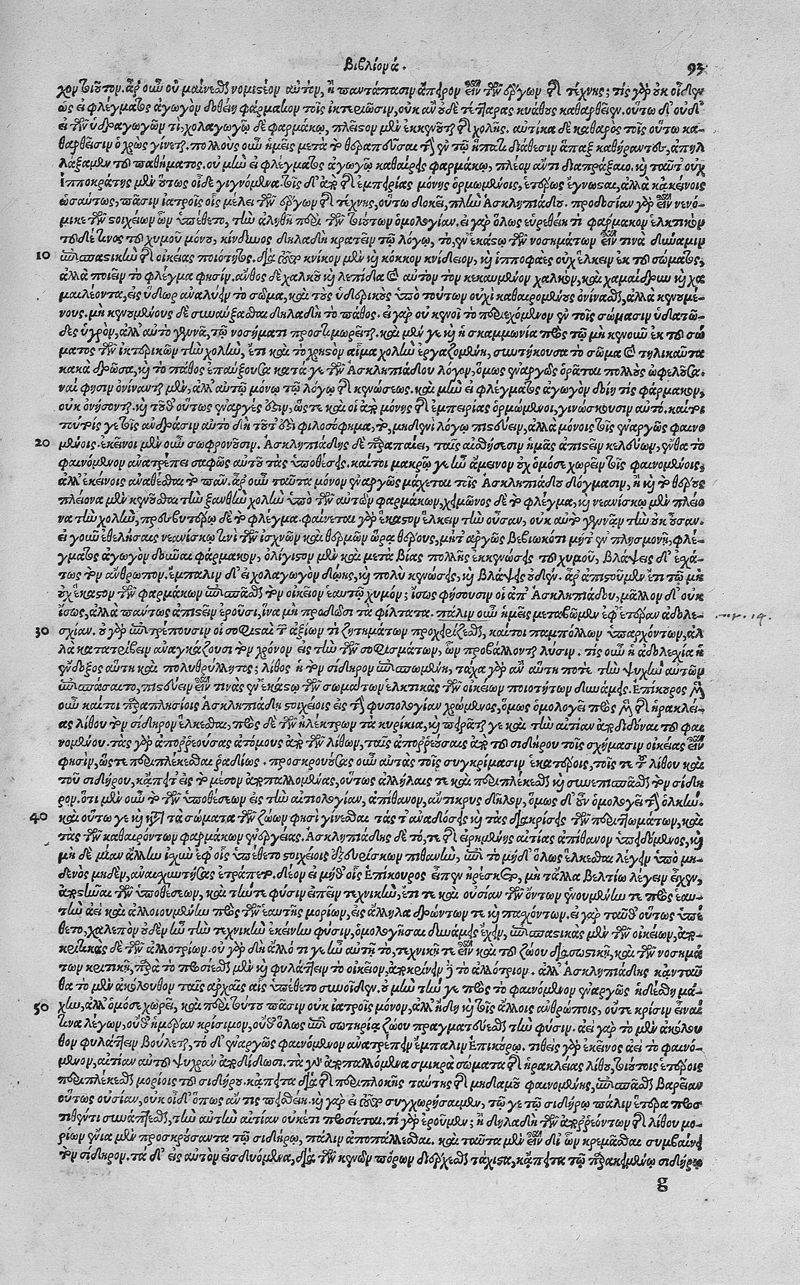 Βιβλίον ά.
93
χον πιστόν. ἆρ οὖν οὐ μαίνεσθαι νομιστέον αὐτὸν, ἢ παντάπασιν ἄπειρον εἶναι τῶν ἔργων τῆς τέχνης; τίς γὰρ οὐκ οἶδεν
ὡς εἰ φλέγματος ἀγωγὸν δοθείη φάρμακον τοῖς ἰκτεριῶσιν, οὐκ ἂν οὐδὲ τέτταρας κυάθους καθαρθεῖεν. οὕτω δ' οὐδ'
εἰ τῶν ὑδραγωγῶν τι· χολαγωγῷ δὲ φαρμάκῳ, πλεῖστον μὲν ἐκκενοῦται τῆς χολῆς. αὐτίκα δὲ καθαρὸς τοῖς οὕτω κα-
θαρθεῖσιν ὁ χρὼς γίνεται. πολλοὺς οὖν ἡμεῖς μετὰ τὸ θεραπεῦσαι τὴν ἐν τῷ ἥπατι διάθεσιν ἅπαξ καθήραντες, ἀπηλ
λάξαμεν τοῦ παθήματος. οὐ μὴν εἰ φλέγματος ἀγωγῷ καθαίροις φαρμάκῳ, πλέον ἄν τι διαπράξαιο. καὶ ταῦτ' οὐχ
ἱπποκράτης μὲν οὕτως οἶδε γιγνόμενα· τοῖς δ' ἀπὸ τῆς ἐμπειρίας μόνης ὁρμωμένοις, ἑτέρως ἔγνωσται, ἀλλὰ κἀκείνοις
ὡσαύτως, πᾶσιν ἰατροῖς οἷς μέλει τῶν ἔργων τῆς τέχνης, οὕτω δοκεῖ, πλὴν Ἀσκληπιάδου. προδοσίαν γὰρ εἶναι νενό-
μικε τῶν στοιχείων ὧν ὑπέθετο, τὴν ἀληθῆ περὶ τῶν τοιούτων ὁμολογίαν. εἰ γὰρ ὅλως εὑρεθείη τι φάρμακον ἑλκτικὸν
τοῦδέ τινος τοῦ χυμοῦ μόνου, κίνδυνος δηλαδὴ κρατεῖν τῷ λόγῳ, τὸ, ἐν ἑκάστῳ τῶν νοσημάτων εἶναί τινα δύναμιν
10 ἐπισπαστικὴν τῆς οἰκείας ποιότητος. διὰ τοῦτο κνίκον μὲν καὶ κόκκον κνίδειον, καὶ ἱπποφαὲς οὐχ ἕλκειν ἐκ τοῦ σώματος,
ἀλλὰ ποιεῖν τὸ φλέγμα φησίν. ἄνθος δὲ χαλκοῦ καὶ λεπίδα καὶ αὐτὸν τὸν κεκαυμένον χαλκὸν, καὶ χαμαίδρυν καὶ χα
μαιλέοντα, εἰς ὕδωρ ἀναλύειν τὸ σῶμα, καὶ τοὺς ὑδερικοὺς ὑπὸ τούτων οὐχὶ καθαιρομένους ὀνίνασθαι, ἀλλὰ κενουμέ-
νους. μὴ κενουμένους δὲ συναύξεσθαι δηλαδὴ τὸ πάθος. εἰ γὰρ οὐ κενοῖ τὸ περιεχόμενον ἐν τοῖς σώμασιν ὑδατῶ-
δες ὑγρὸν, ἀλλ' αὐτὸ γεννᾷ, τῷ νοσήματι προστιμωρεῖται. καὶ μέν γε καὶ ἡ σκαμμωνία πρὸς τῷ μὴ κενοῦν ἐκ τοῦ σώ
ματος τῶν ἰκτερικῶν τὴν χολὴν, ἔτι καὶ τὸ χρηστὸν αἷμα χολὴν ἐργαζομένη, συντήκουσα τὸ σῶμα καὶ τηλικαῦτα
κακὰ δρῶσα, καὶ τὸ πάθος ἐπαύξουσα κατά γε τὸν Ἀσκληπιάδου λόγον, ὅμως ἐναργῶς ὁρᾶται πολλοὺς ὠφελοῦσα.
ναί φησιν ὀνίνανται μὲν, ἀλλ' αὐτῷ μόνῳ τῷ λόγῳ τῆς κενώσεως. καὶ μὴν εἰ φλέγματος ἀγωγὸν δοίης τις φάρμακον,
οὐκ ὀνήσονται. καὶ τοῦθ' οὕτως ἐναργές ἐστιν, ὥστε καὶ οἱ ἀπὸ μόνης τῆς ἐμπειρίας ὁρμώμενοι, γινώσκουσιν αὐτό. καίτοι
τούτοις γε τοῖς ἀνδράσιν αὐτὸ δὴ τοῦτ' ἔστι φιλοσόφημα, τὸ, μηδενὶ λόγῳ πιστεύειν, ἀλλὰ μόνοις τοῖς ἐναργῶς φαινο
20 μένοις· ἐκεῖνοι μὲν οὖν σωφρονοῦσιν. Ἀσκληπιάδης δὲ παραπαίει, ταῖς αἰσθήσεσιν ἡμᾶς ἀπιστεῖν κελεύων, ἔνθα τὸ
φαινόμενον ἀνατρέπει σαφῶς αὐτοῦ τὰς ὑποθέσεις. καίτοι μακρῷ γ' ἦν ἄμεινον οὐχ ὁμόσε χωρεῖν τοῖς φαινομένοις,
ἀλλ' ἐκείνοις ἀναθέσθαι τὸ πᾶν. ἆρ' οὖν ταῦτα μόνον ἐναργῶς μάχεται τοῖς Ἀσκληπιάδου δόγμασιν, ἢ καὶ τὸ θέρους
πλείονα μὲν κενοῦσθαι τὴν ξανθὴν χολὴν ὑπὸ τῶν αὐτῶν φαρμάκων, χειμῶνος δὲ τὸ φλέγμα, καὶ νεανίσκῳ μὲν πλείο
να τὴν χολὴν, πρεσβυτέρῳ δὲ τὸ φλέγμα. φαίνεται γὰρ ἕκαστον ἕλκειν τὴν οὖσαν, οὐκ αὐτὸ γεννᾶν τὴν οὐκ οὖσαν.
εἰ γοῦν ἐθελήσαις νεανίσκῳ τινὶ τῶν ἰσχνῶν καὶ θερμῶν ὥρᾳ θέρους, μήτ' ἀργῶς βεβιωκότι μήτ' ἐν πλησμονῇ, φλέ-
γματος ἀγωγὸν δοῦναι φάρμακον, ὀλίγιστον μὲν καὶ μετὰ βίας πολλῆς ἐκκενώσεις τοῦ χυμοῦ, βλάψεις δ' ἐσχά-
τως τὸν ἄνθρωπον. ἔμπαλιν δ' εἰ χολαγωγὸν δώης, καὶ πολὺ κενώσεις, καὶ βλάψεις οὐδέν. ἆρ' ἀπιστοῦμεν ἔτι τῷ μὴ
οὐχ ἕκαστον τῶν φαρμάκων ἐπισπᾶσθαι τὸν οἰκεῖον ἑαυτῷ χυμόν; ἴσως φήσουσιν οἱ ἀπ' Ἀσκληπιάδου, μᾶλλον δ' οὐκ
ἴσως, ἀλλὰ πάντως ἀπιστεῖν ἐροῦσιν, ἵνα μὴ προδῶσι τὰ φίλτατα. πάλιν οὖν ἡμεῖς μεταβῶμεν ἐφ' ἑτέραν ἀδολε-
30 σχίαν. οὐ γὰρ ἐπιτρέπουσιν οἱ σοφισταὶ τῶν ἀξίων τι ζητημάτων προχειρίζεσθαι, καίτοι παμπόλλων ὑπαρχόντων, ἀλ
λὰ κατατρίβειν ἀναγκάζουσι τὸν χρόνον εἰς τὴν τῶν σοφισμάτων, ὧν προβάλλουσι λύσιν. τίς οὖν ἡ ἀδολεσχία ἡ
ἔνδοξος αὕτη καὶ πολυθρύλλητος; λίθος ἡ τὸν σίδηρον ἐπισπωμένη, τάχα γὰρ ἂν αὕτη ποτὲ τὴν ψυχὴν αὐτῶν
ἐπισπάσαιτο, πιστεύειν εἶναί τινας ἐν ἑκάστῳ τῶν σωμάτων ἑλκτικὰς τῶν οἰκείων ποιοτήτων δυνάμεις. Ἐπίκουρος μὲν
οὖν καίτοι παραπλησίοις Ἀσκληπιάδῃ στοιχείοις εἰς τὴν φυσιολογίαν χρώμενος, ὅμως ὁμολογεῖ πρὸς μὲν τῆς ἡρακλεί-
ας λίθου τὸν σίδηρον ἕλκεσθαι, πρὸς δὲ τῶν ἠλέκτρων τὰ κυρίκια, καὶ πειρᾶταί γε καὶ τὴν αἰτίαν ἀποδιδόναι τοῦ φαι
νομένου. τὰς γὰρ ἀπορρεούσας ἀτόμους ἀπὸ τῶν λίθων, ταῖς ἀπορρεούσαις ἀπὸ τοῦ σιδήρου τοῖς σχήμασιν οἰκείας εἶναί
φησιν, ὥστε περιπλέκεσθαι ῥᾳδίως. προσκρουούσας οὖν αὐτὰς τοῖς συγκρίμασιν ἑκατέροις, τοῖς τε τῆς λίθου καὶ
τοῦ σιδήρου, κἄπειτ' εἰς τὸ μέσον ἀποπαλλομένας, οὕτως ἀλλήλαις τε καὶ περιπλέκεσθαι καὶ συνεπισπᾶσθαι τὸν σίδη
ρον. ὅτι μὲν οὖν τὸ τῶν ὑποθέσεων εἰς τὴν αἰτιολογίαν, ἀπίθανον, ἄντικρυς δῆλον, ὅμως δ' οὖν ὁμολογεῖ τὴν ὁλκήν.
40 καὶ οὕτω γε καὶ κατὰ τὰ σώματα τῶν ζώων φησὶ γίνεσθαι τάς τ' ἀναδόσεις καὶ τὰς διακρίσεις τῶν περιττωμάτων, καὶ
τὰς τῶν καθαιρόντων φαρμάκων ἐνεργείας. Ἀσκληπιάδης δὲ τό, τε τῆς εἰρημένης αἰτίας ἀπίθανον ὑπειδόμενος, καὶ
μηδὲ μίαν ἄλλην ἰσχὺν ἐφ' οἷς ὑπέθετο στοιχείοις ἐξευρίσκων πιθανὴν, ἐπὶ τὸ μηδ' ὅλως ἕλκεσθαι λέγειν ὑπὸ μη-
δενὸς μηδὲν, ἀναισχυντήσας ἐτράπετο. δέον εἰ μήθ' οἷς Ἐπίκουρος εἶπεν ἠρέσκετο, μὴ τἄλλα βελτίω λέγειν εἶχεν,
ἀποστῆναι τῶν ὑποθέσεων, καὶ τήν τε φύσιν εἰπεῖν τεχνικὴν, ἔτι τε καὶ οὐσίαν τῶν ὄντων ἑνουμένην τε πρὸς ἑαυ-
τὴν ἀεὶ καὶ ἀλλοιουμένην πρὸς τῶν ἑαυτῆς μορίων, εἰς ἄλληλα δρώντων τε καὶ πασχόντων. εἰ γὰρ ταῦθ' οὕτως ὑπέ
θετο, χαλεπὸν οὐδὲν ἦν τὴν τεχνικὴν ἐκείνην φύσιν, ὁμολογῆσαι δυνάμεις ἔχειν, ἐπισπαστικὰς μὲν τῶν οἰκείων, ἀπο-
κριτικὰς δὲ τῶν ἀλλοτρίων. οὐ γὰρ δὴ ἄλλό τι γ' ἦν αὐτῇ τὸ, τεχνικῇ τε εἶναι καὶ τοῦ ζώου διασωστικῇ, καὶ τῶν νοσημά
των κριτικῇ, παρὰ τὸ προσίεσθαι μὲν καὶ φυλάττειν τὸ οἰκεῖον, ἀποκρίνειν δὲ τὸ ἀλλότριον. ἀλλ' Ἀσκληπιάδης κἀνταῦ
θα τὸ μὲν ἀκόλουθον ταῖς ἀρχαῖς αἷς ὑπέθετο συνεῖδεν, οὐ μὴν τήν γε πρὸς τὸ φαινόμενον ἐναργῶς ᾐδέσθη μά-
50 χην, ἀλλ' ὁμόσε χωρεῖ, καὶ περὶ τούτου πᾶσιν οὐκ ἰατροῖς μόνον, ἀλλ' ἤδη καὶ τοῖς ἄλλοις ἀνθρώποις, οὔτε κρίσιν εἶναί
τινα λέγων, οὔθ' ἡμέραν κρίσιμον, οὔθ' ὅλως ἐπὶ σωτηρίᾳ ζώου πραγματεύεσθαι τὴν φύσιν. ἀεὶ γὰρ τὸ μὲν ἀκόλου
θον φυλάττειν βούλεται, τὸ δ' ἐναργῶς φαινόμενον ἀνατρέπειν ἔμπαλιν Ἐπικούρῳ. τιθεὶς γὰρ ἐκεῖνος ἀεὶ τὸ φαινό-
μενον, αἰτίαν αὐτοῦ ψυχρὰν ἀποδίδωσι. τὰ γὰρ ἀποπαλλόμενα σμικρὰ σώματα τῆς ἡρακλείας λίθου, τοιούτοις ἑτέροις
περιπλέκεσθαι μορίοις τοῦ σιδήρου. κἄπειτα διὰ τῆς περιπλοκῆς ταύτης τῆς μηδαμοῦ φαινομένης, ἐπισπᾶσθαι βαρεῖαν
οὕτως οὐσίαν, οὐκ οἶδ' ὅπως ἄν τις πεισθείη. καὶ γὰρ εἰ τοῦτο συγχωρήσαιμεν, τῷ γε τῷ σιδήρῳ πάλιν ἕτερα προσ
τιθέντι συνάπτεσθαι, τὴν αὐτὴν αἰτίαν οὐκέτι προσίεται. τί γὰρ ἐροῦμεν; ἢ δηλαδὴ τῶν ἀπορρεόντων τῆς λίθου μο-
ρίων ἔνια μὲν προσκρούσαντα τῷ σιδήρῳ, πάλιν ἀποπάλλεσθαι. καὶ ταῦτα μὲν εἶναι δι' ὧν κρεμᾶσθαι συμβαίνει
τὸν σίδηρον. τὰ δ' εἰς αὐτὸν εἰσδυόμενα, διὰ τῶν κενῶν πόρων διέρχεσθαι τάχιστα, κἄπειτα τῷ παρακειμένῳ σιδήρῳ
g